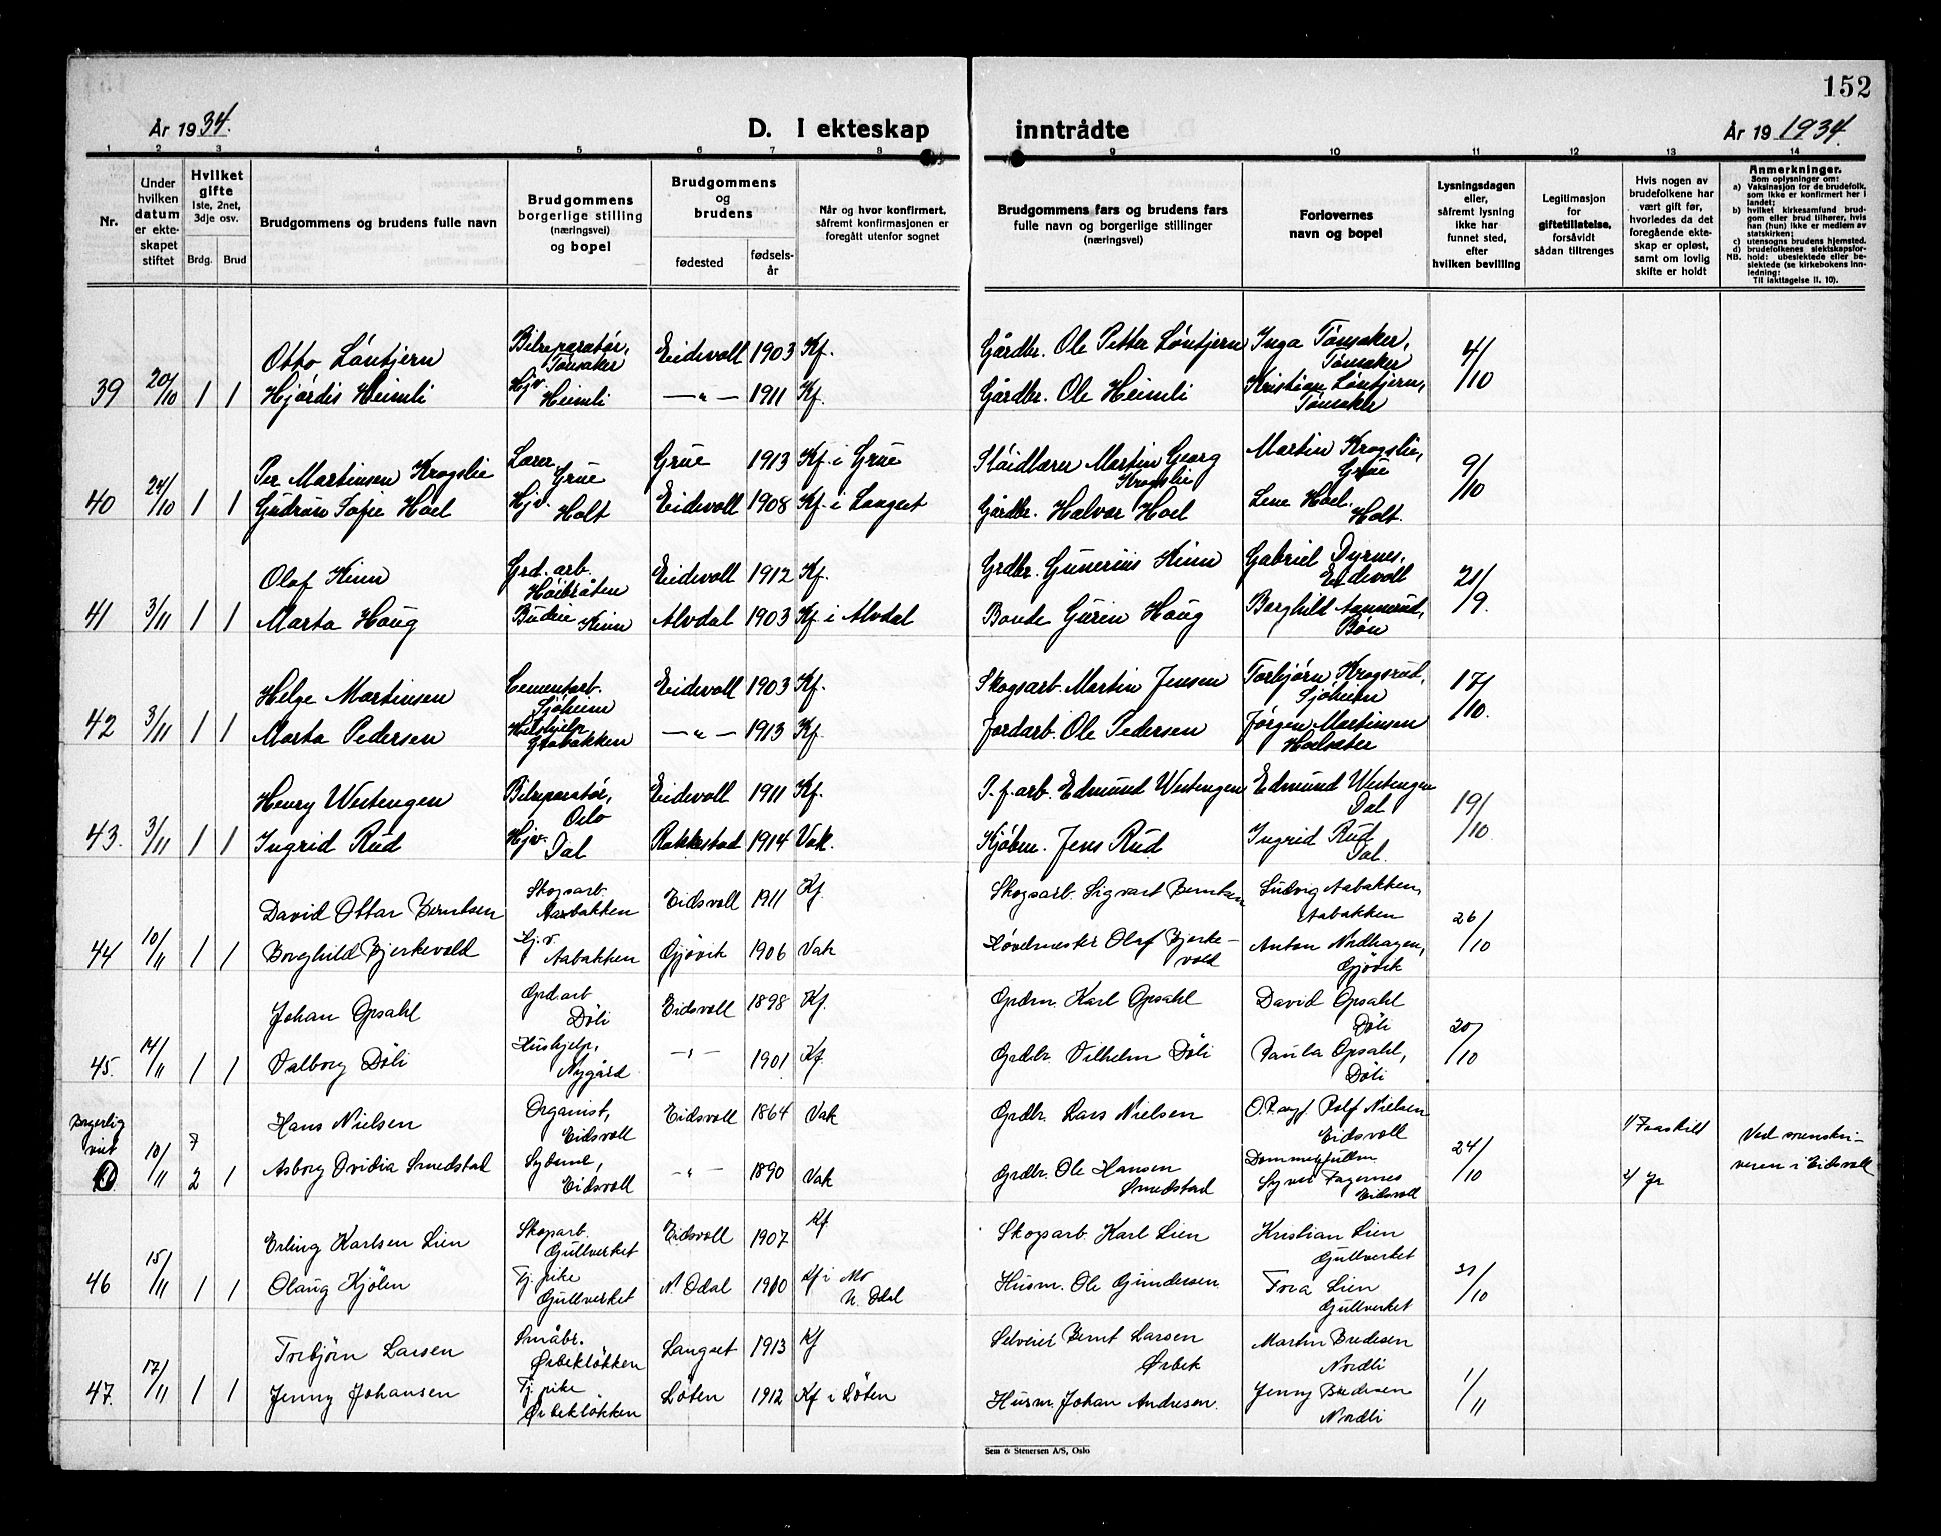 152
År 1934.
D. I ekteskap inntrådte
År 19 1934.
1 2 3 4 5 6 7 8 9 10 11 12 13 14
Nr.
Under hvilken datum er ekteskapet stiftet
Hvilket gifte 1ste, 2net, 3dje osv.
Brdg. Brud
Brudgommens og brudens fulle navn
Brudgommens borgerlige stilling (næringsvei) og bopel
Brudgommens og brudens
fødested
fødselsår
Når og hvor konfirmert, såfremt konfirmasjonen er foregått utenfor sognet
Brudgommens fars og brudens fars fulle navn og borgerlige stillinger (næringsvei)
Forlovernes navn og bopel
Lysningsdagen eller, såfremt lysning ikke har funnet sted, efter hvilken bevilling
Legitimasjon for giftetillatelse, forsåvidt sådan tiltrenges
Hvis nogen av brudefolkene har vært gift før, hvorledes da det foregående ekteskap er opløst, samt om lovlig skifte er holdt
Anmerkninger.
Som oplysninger om:
a) Vaksinasjon for de brudefolk, som ikke er konfirmert her i landet;
b) hvilket kirkesamfund brudgom eller brud tilhører, hvis han (hun) ikke er medlem av statskirken;
c) utensogns brudens hjemsted.
d) brudefolkenes slektskapsforhold: ubeslektede eller beslektede (se kirkebokens innledning:
NB.
Til iakttagelse II. 10).
Otto Løntjern Bilreparatør, Tønsaker Eidsvoll 1903 Kf. Gårdbr. Ole Petter Løntjern Inga Tønsaker, Tønsaker 4/10
39 20/10 1 1 Hjørdis Heimli Hjv. Heimli —"— 1911 Kf. Gårdbr. Ole Heimli Kristian Løntjern, Tønsaker
Per Martinsen Krogslie Lærer Grue Grue 1913 Kf. i Grue Sløidlærer Martin Georg Krogslie Martin Krogslie, Grue 9/10
40 24/10 1 1 Gudrun Sofie Hoel Hjv. Holt Eidsvoll 1908 Kf. i Langset Gårdbr. Halvor Hoel Lene Hoel. Holt.
Olaf Kinn Grd. arb. Høibråten Eidsvoll 1912 Kf. Grdbr. Gunerius Kinn Gabriel Dyrnes, Eidsvoll 21/9.
41 3/11 1 1 Marta Haug Budeie Kinn Alvdal 1903 Kf. i Alvdal Bonde Guren Haug Borghild Aannerud, Bøn
Helge Martinsen Cementarb. Sjøheim Eidsvoll 1903 Kf. Skogsarb. Martin Jensen Torbjørn Krogsrud, Sjøheim 17/10.
42 3/11 1 1 Marta Pedersen —"— 1913 Kf. Jordarb. Ole Pedersen Jørgen Martinsen Hoelsæter
Henry Westengen Bilreparatør, Oslo Eidsvoll 1911 Kf. P. f. arb. Edmund Westengen Edmund Westengen Dal 19/10
43. 3/11 1 1 Ingrid Rud Hjv. Dal Rakkestad 1914 Vak. Kjøbm. Jens Rud Ingrid Rud Dal.
David Ottar Berntsen Skogsarb. Aasbakken Eidsvoll 1911 Kf. Skogsarb. Sigvart Berntsen Ludvig Aabakken, Aabakken 26/10
44 10/11 1 1 Borghild Bjerkevold Hj. v. Aabakken Gjøvik 1906 Vak Høvelmester Olaf Bjerkevold Anton Nordhagen, Gjøvik
Johan Opsahl Grd. arb Døli Eidsvoll 1898 Kf. Grdm. Karl Opsahl David Opsahl Døli 20/10
45. 14/11 1 1 Valborg Døli Hushjelp, Nygård —"— 1901 Kf Grdbr. Vilhelm Døli Paula Opsahl, Døli
Borgerlig viet Hans Nielsen Organist, Eidsvoll Eidsvoll 1864 Vak Grdbr. Lars Nielsen Rolf Nielsen Eidsvoll 24/10 1/ Fraskilt Ved sorenskriveren i Eidsvoll
10/11 2 1 Asborg Ovidia Smedstad Sydame, Eidsvoll —"— 1890 Vak Grdbr. Ole Hansen Smedstad Dommerfullm Syver Fagernes Eidsvoll 2/
Erling Karlsen Lien Skogarb. Gullverket Eidsvoll 1907 Kf Skogsarb. Karl Lien Kristian Lien Gullverket 31/10
46 15/11 1 1 Olaug Kjølen Tj. pike Gullverket N. Odal 1910 Kf i Mo N. Odal Husm. Ole Gundersen Lien Gullverket
Torbjørn Larsen Småbr. Ørbekløkken Langset 1913 Kf Selveier Bernt Larsen Ørbek Martin Bredesen Nordli 1/11
47. 17/11 1 1 Jenny Johansen Tj. pike Ørbekløkken Løten 1912 Kf i Løten Husm. Johan Andresen. Jenny Bredesen Nordli
Sem & Stenersen A/S, Oslo